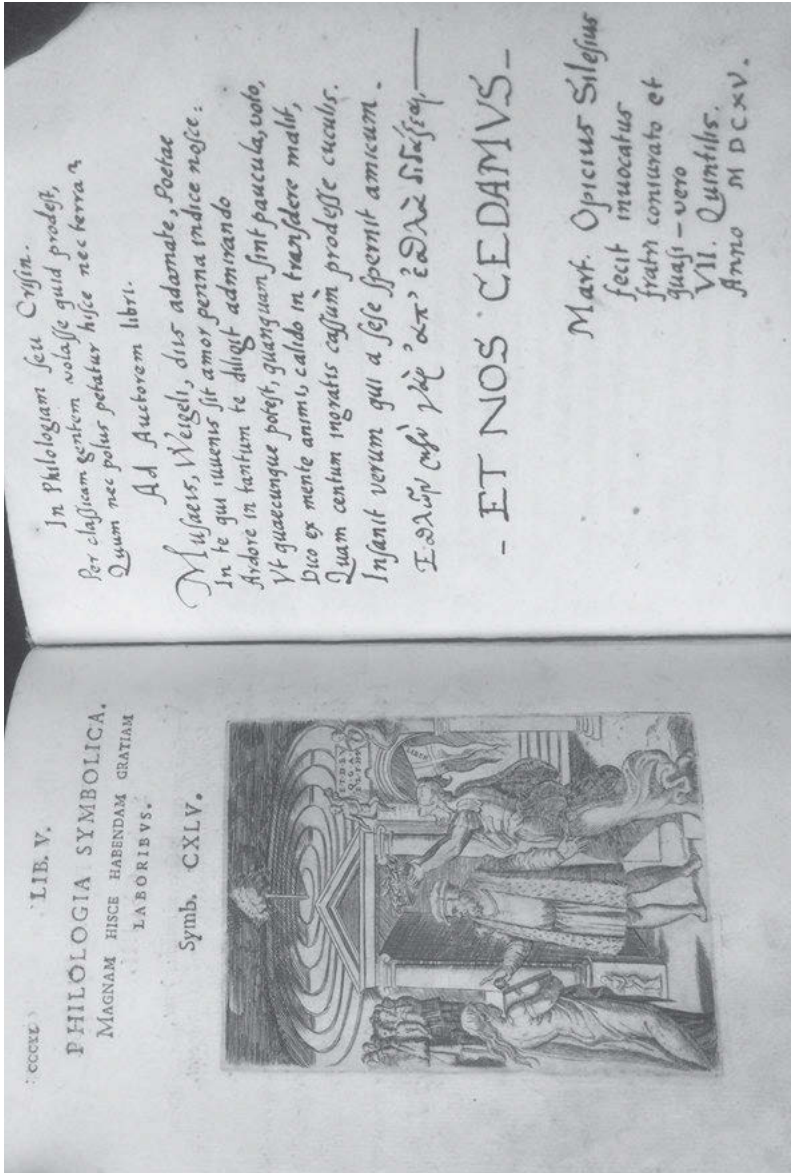 LIB. V.
PHILOLOGIA SYMBOLICA.
MAGNAM HISCE HABENDAM GRATIAM
LABORIBVS.
Symb. CXLV.
In Philologiam ſeu Criſin.
Per claſſicam gentem volaſſe quid prodeſt,
Quum nec polus petatur hiſce nec terra?
Ad Auctorem libri.
Muſaeis, Weigeli, diis adamate, Poetae
In te qui iuuenis ſit amor penna indice noſce:
Ardore in tantum te diligit admirando
Vt quaecunque poteſt, quanquam ſint paucula, voto,
Dico ex mente animi, calido in transdere malit,
Quam centum ingratis caſſum prodeſſe cuculis.
Inſanit verum qui a ſeſe ſpernit amicum.
Εσθλῶν μὲν γὰρ ἀπ' ἐσθλὰ διδάξεαι.
- ET NOS CEDAMVS -
Mart. Opicius Sileſius
fecit inuocatus
fratri coniurato et
quaſi - vero
VII. Quintilis.
Anno MDCXV.